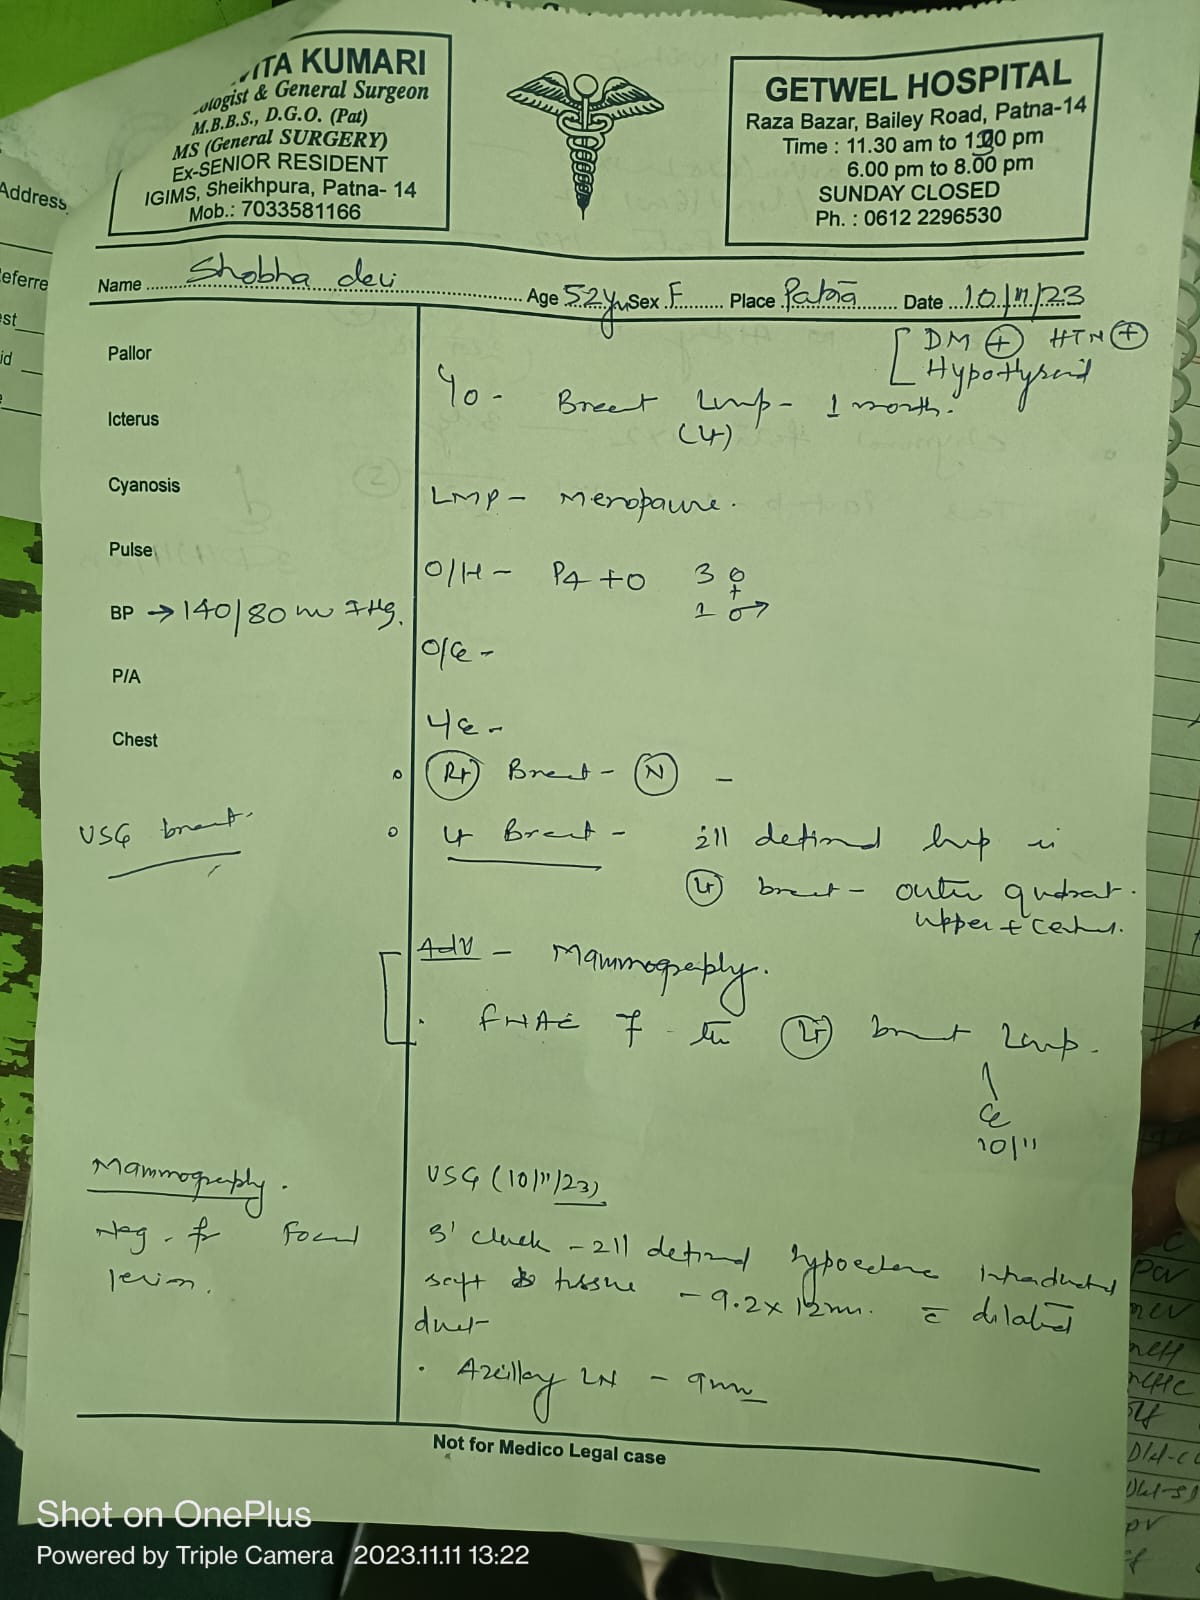 VITA KUMARI
ologist & General Surgeon
M.B.B.S., D.G.O. (Pat)
MS (General SURGERY)
Ex-SENIOR RESIDENT
IGIMS, Sheikhpura, Patna- 14
Mob.: 7033581166
GETWEL HOSPITAL
Raza Bazar, Bailey Road, Patna-14
Time : 11.30 am to 1.30 pm
6.00 pm to 8.00 pm
SUNDAY CLOSED
Ph. : 0612 2296530
Address
eferre
est
id
Name Shobha devi Age 52yr Sex F Place Patna Date 10/11/23
DM (+) HTN (+)
Hypothyroid
Pallor
C/o - Breast Lump - 1 month.
(Lt)
Icterus
Cyanosis
LMP - Menopause.
Pulse
O/H - P4+0 3 ♀
1 ♂
BP → 140/80 mm Hg.
O/E -
P/A
L/E -
Chest
(Rt) Breast - (N) -
USG breast.
Lt Breast - ill defined lump in
(Lt) breast - outer quadrant.
upper + central.
Adv - Mammography.
FNAC f - the (Lt) breast Lump.
10/11
Mammography.
Neg. for Focal
lesion.
USG (10/11/23)
3' clock - ill defined hypoechoic intraductal
soft tissue - 9.2 x 12mm. c̄ dilated
duct
Axillary LN - 9mm
Not for Medico Legal case
Shot on OnePlus
Powered by Triple Camera 2023.11.11 13:22